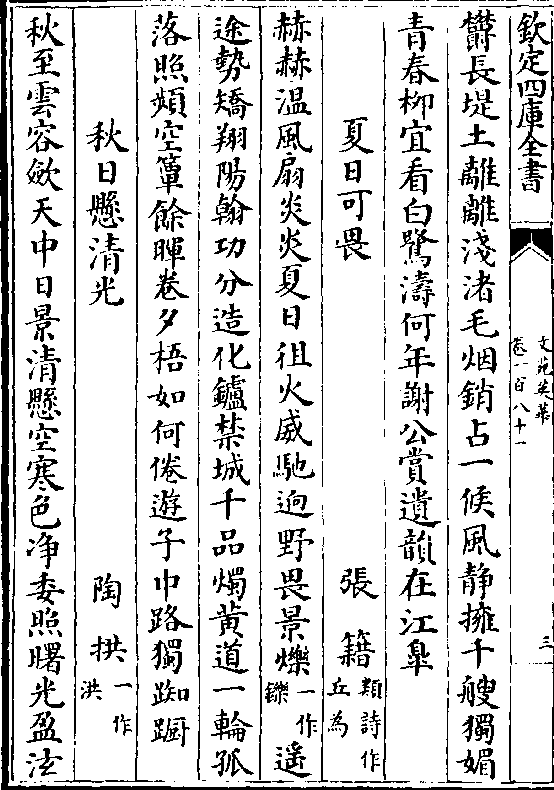 欽定四庫全書
文苑英華
卷一百八十一
三
欝長堤土離離淺渚毛烟銷占一候風静擁千艘獨媚
青春柳宜看白鷺濤何年謝公賞遺韻在江臯
夏日可畏
張籍
類詩作
丘為
赫赫温風扇炎炎夏日徂火威馳逈野畏景爍
一作
鑠
遥
途勢矯翔陽翰功分造化鑪禁城千品燭黄道一輪孤
落照頻空簟餘暉卷夕梧如何倦遊子中路獨踟蹰
秋日懸清光
陶拱
一作
洪
秋至雲容歛天中日景清懸空寒色净委照曙光盈泫